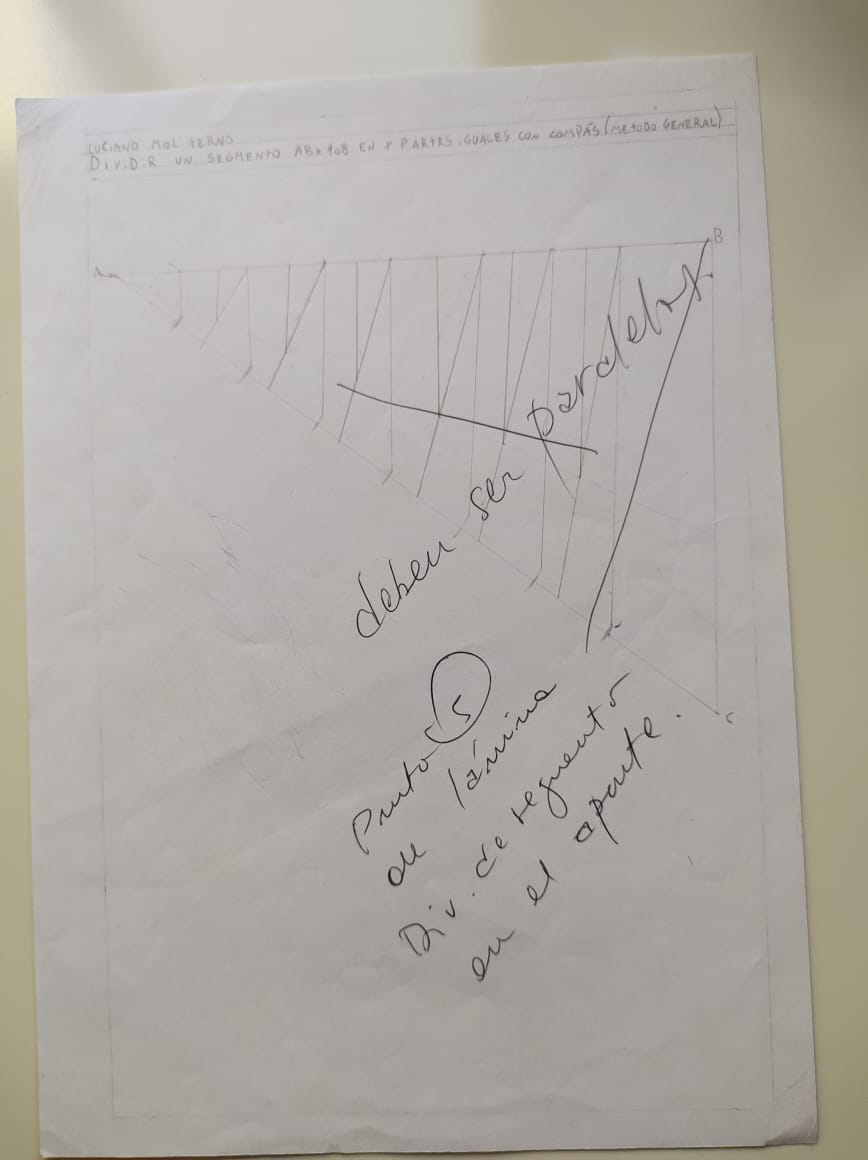 LUCIANO MOLITERNO
DIVIDIR UN SEGMENTO AB= 108 EN PARTES IGUALES CON COMPÁS (METODO GENERAL)
A
B
deben ser paralelas
Punto 5
de lámina
Div. de segmento
en el aparte.
C